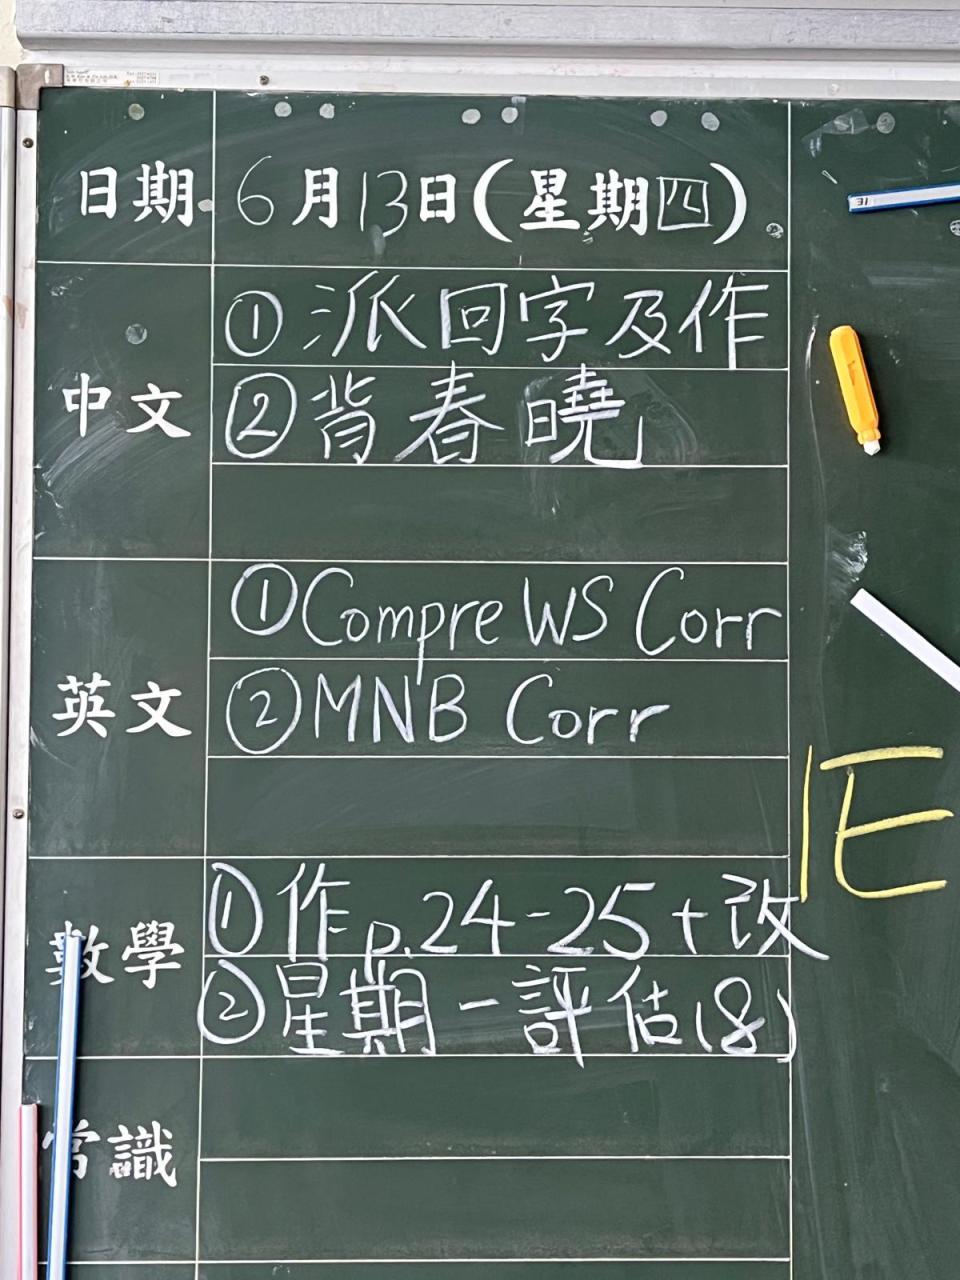 日期 6月13日(星期四)
中文
①派回字及作
②背春曉
英文
①Compre WS Corr
②MNB Corr
1E
數學
①作p.24-25+改
②星期一評估(8)
常識